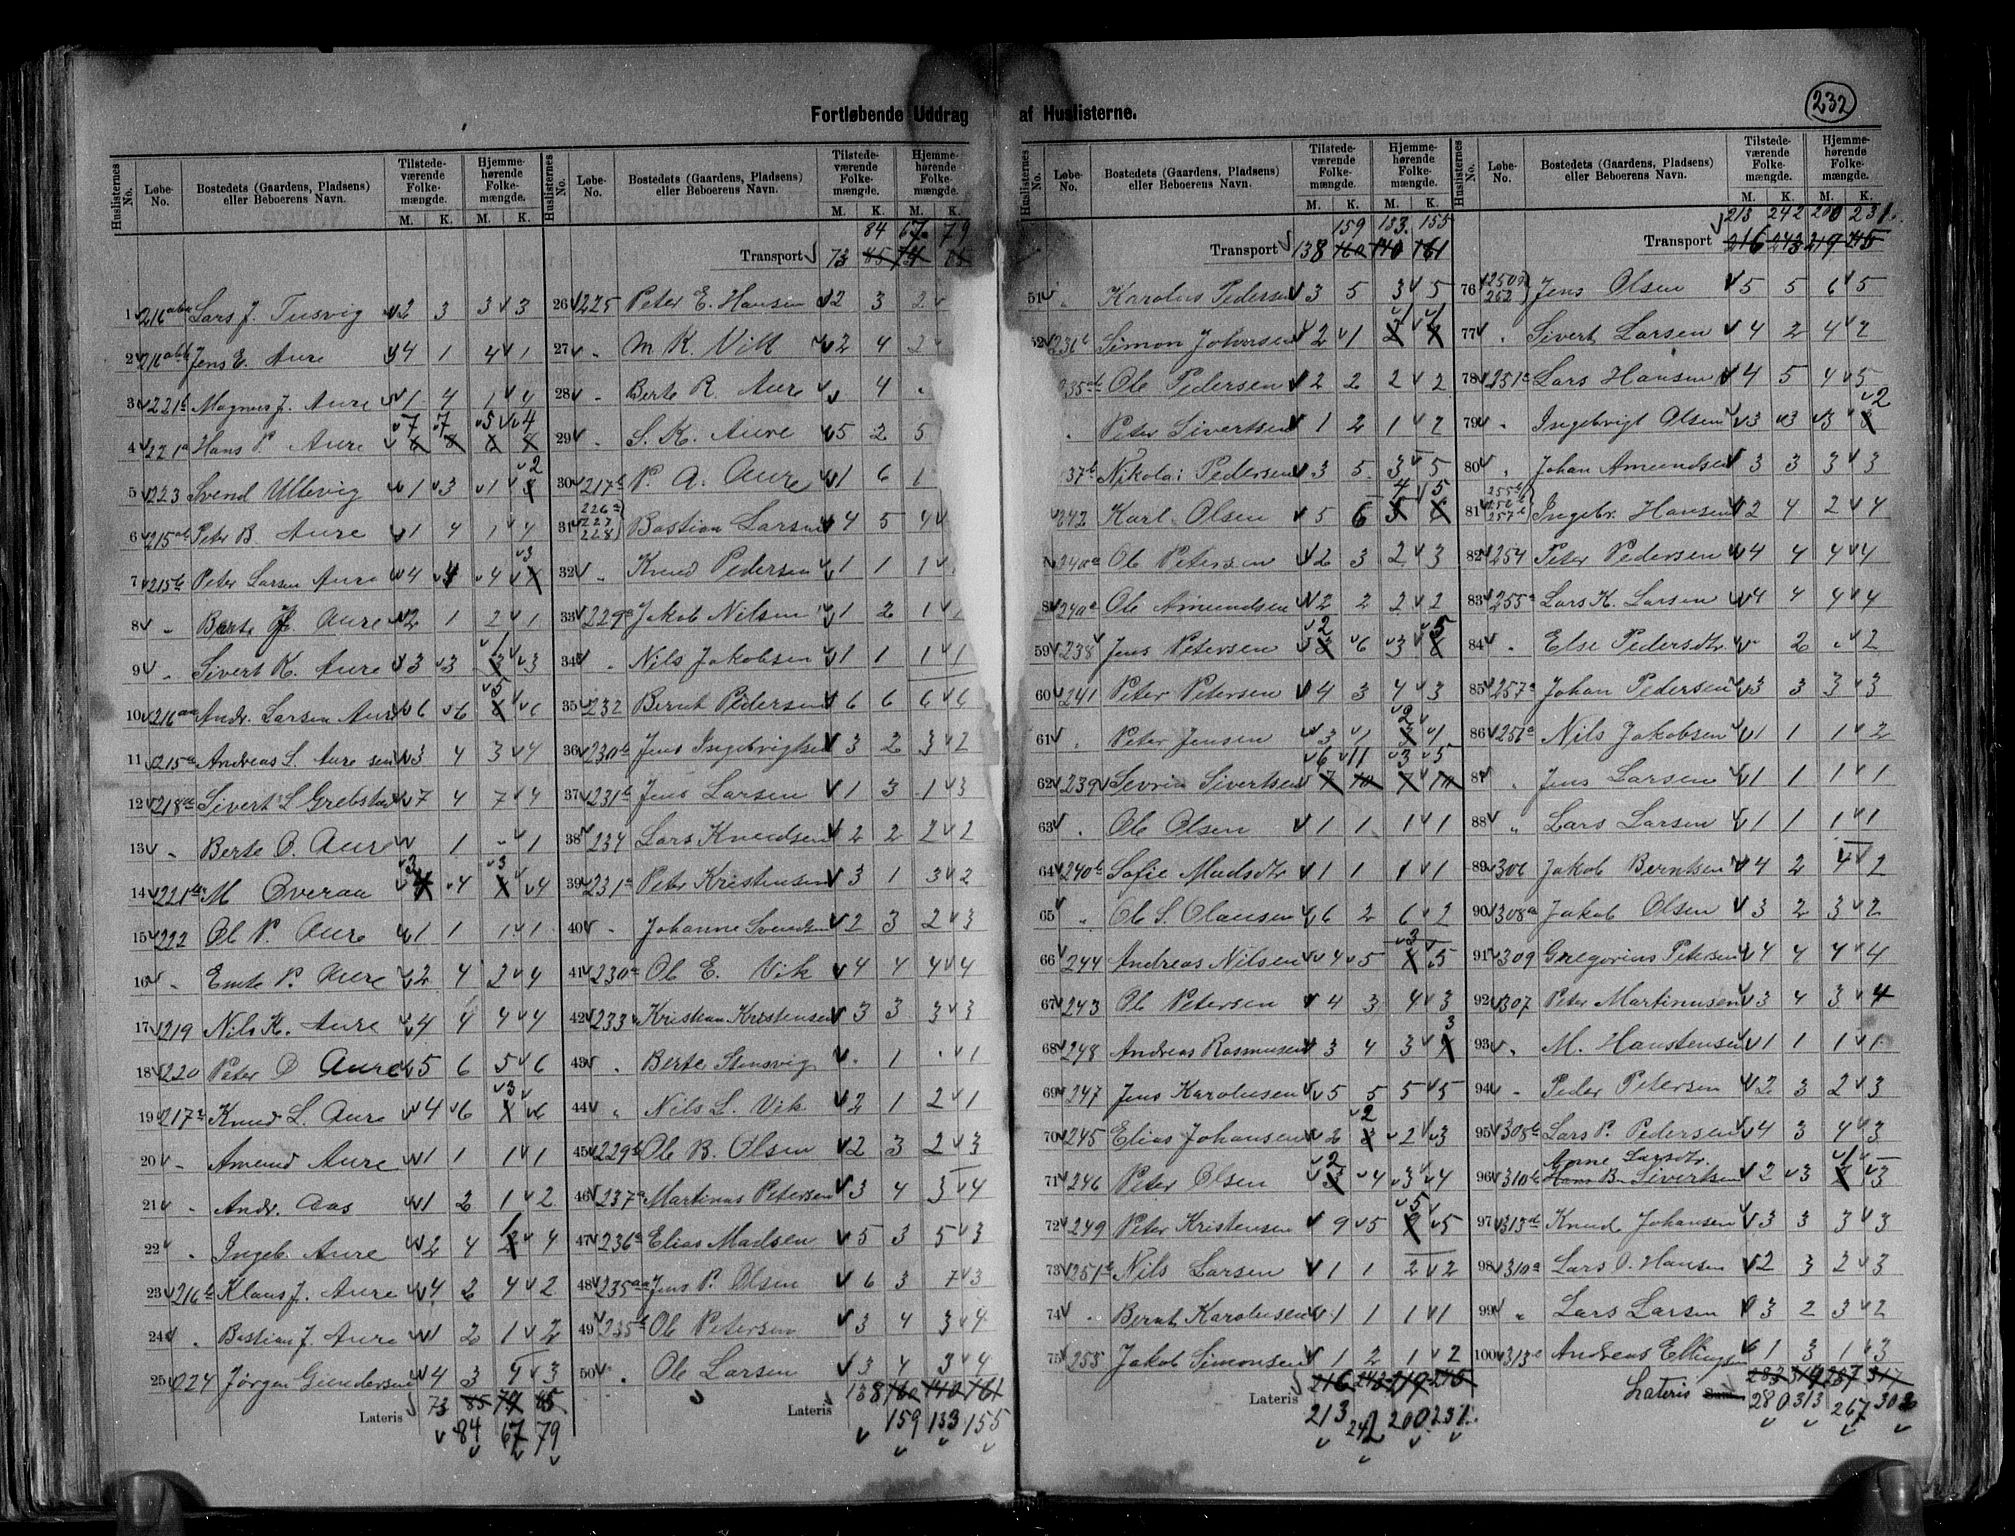 232
Fortløbende Uddrag af Huslisterne.
Huslisternes No. Løbe-No. Bostedets (Gaardens, Pladsens) eller Beboerens Navn. Tilstedeværende Folkemængde. Hjemmehørende Folkemængde.
M. K. M. K.
1 216 Lars J. 2 3 3 3
2 216 Jens E. Aure 4 1 4 1
3 221b Magnus J. Aure 1 4 1 4
4 221a Hans P. Aure 7 7 5 4
5 223 Svend Ullevig 1 3 1 2
6 215 Peter B. Aure 1 4 1 4
7 215b Peter Larsen Aure 4 4 4 3
8 " Berte Aure 2 1 2 1
9 " Sivert K. Aure 3 3 1 3
10 216 Andr. Larsen Aure 6 6 5 6
11 215a Andreas L. Aure 3 4 3 4
12 218 Sivert L Grebstad 7 4 7 4
13 " Berte O. Aure 1 - 1
14 221 M Overaa 3 4 3 4
15 222 Ol P. Aure 1 1 1 1
16 " P. Aure 2 4 2 4
17 219 Nils K. Aure 4 4 4 4
18 220 Peter O Aure 5 6 5 6
19 217a Knud L. Aure 4 6 3 6
20 " Amund Aure 1 1 1 1
21 " Andr. Aas 1 2 1 2
22 " Ingeb. Aure 2 4 4
23 216b Klaus J. Aure 4 2 4 2
24 " Bastian J. Aure 1 2 1 2
25 224 Jørgen Gundersen 4 3 3
Lateris 73 85 79 85
84 67 79
Transport 84 67 79
73 85 85
26 225 Peter E. Hansen 2 3 2
27 " M K. Vik 2 4 2
28 " Berte R. Aure 4
29 " S. K. Aure 5 2 5
30 217b P. A. Aure 1 6 1
31 226a 227 228 Bastian Larsen 4 5 4
32 " Knud Pedersen 1 1 1
33 229a Jakob Nilsen 1 2 1
34 " Nils Jakobsen 1 1 1 1
35 232 Bernt Pedersen 6 6 6 6
36 230b Jens Ingebrigtsen 3 2 3 2
37 231b Jens Larsen 1 3 1 3
38 234 Lars Knudsen 2 2 2 2
39 231a Peter Kristensen 3 1 3 2
40 " Johanne Svendsen 2 3 2 3
41 230a Ole E. Vik 4 4 4 4
42 233 Kristian Kristensen 3 3 3 3
43 " Berte Stensvig . 1 . 1
44 " Nils L. Vik 2 1 2 1
45 229b Ole B. Olsen 2 3 2 3
46 237a Martinus Petersen 3 4 3 4
47 236a Elias Madsen 5 3 5 3
48 235aa Jens P. Olsen 6 3 7 3
49 235b Ole Petersen 3 4 3 4
50 " Ole Larsen 3 4 3 4
Lateris 138 160 140 161
159 133 155
Transport 159 133. 155
138 160 140 161
51 " Karolus Pedersen 3 5 3 5
52 236b Simon Johansen 2 1 1 1
235 Ole Pedersen 2 2 2 2
" Peter Sivertsen 1 2 1 2
37b Nikolai Pedersen 3 5 3 5
242 Karl Olsen 5 6 4 5
240a Ole Petersen 2 3 2 3
240a Ole Amundsen 2 2 2 2
59 238 Jens Petersen 2 6 3 5
60 241 Peter Petersen 4 3 4 3
61 " Peter Jensen 3 1 2 1
62 239 Sevrin Sivertsen 6 11 3 5
63 " Ole Olsen 1 1 1 1
64 240b Sofie Madsdtr 1 1 1 1
65 " Ole S. Olausen 6 2 6 2
66 244 Andreas Nilsen 4 5 3 5
67 243 Ole Petersen 4 3 4 3
68 248 Andreas Rasmussen 3 4 3 3
69 247 Jens Karolusen 5 5 5 5
70 245 Elias Johansen 2 2 2 3
71 246 Peter Olsen 2 4 3 4
72 249 Peter Kristensen 9 5 5 5
73 251b Nils Larsen 1 1 2 2
74 " Bernt Karolusen 1 1 1 1
75 255 Jakob Simonsen 1 2 1 2
Lateris 216 243 219 215
213 242 200 231.
Transport 213 242 200 231.
216 243 219 215
76 250 252 Jens Olsen 5 5 6 5
77 " Sivert Larsen 4 2 4 2
78 251a Lars Hansen 4 5 4 5
79 " Ingebrigt Olsen 3 3 3 2
80 " Johan Amundsen 3 3 3 3
81 255b 256b 257b Ingebr. Hansen 2 4 2 4
82 254 Peter Pedersen 4 4 4 4
83 255a Lars K. Larsen 4 4 4 4
84 " Else Pedersdtr 2 " 2
85 257a Johan Pedersen 3 3 3 3
86 256a Nils Jakobsen 1 1 1 2
87 " Jens Larsen 1 1 1 1
88 " Lars Larsen 1 1 1 1
89 306 Jakob Berntsen 4 2 4 2
90 308a Jakob Olsen 3 2 3 2
91 309 Gregorius Petersen 4 4 4 4
92 307 Peter Martinusen 3 4 3 4
93 " M. Hanstensen 1 1 1 1
94 " Peder Petersen 2 3 2 3
95 308b Lars P. Pedersen 4 3 4 3
96 310b Anne Larsdtr. Hans B. Sivertsen 2 3 1 3
97 313d Knud Johansen 3 3 3 3
98 310a Lars O. Hansen 2 3 2 3
99 " Lars Larsen 3 2 3 2
100 313c Andreas Ellingsen 1 3 1 3
Lateris 283 319 287 317
280 313 267 302